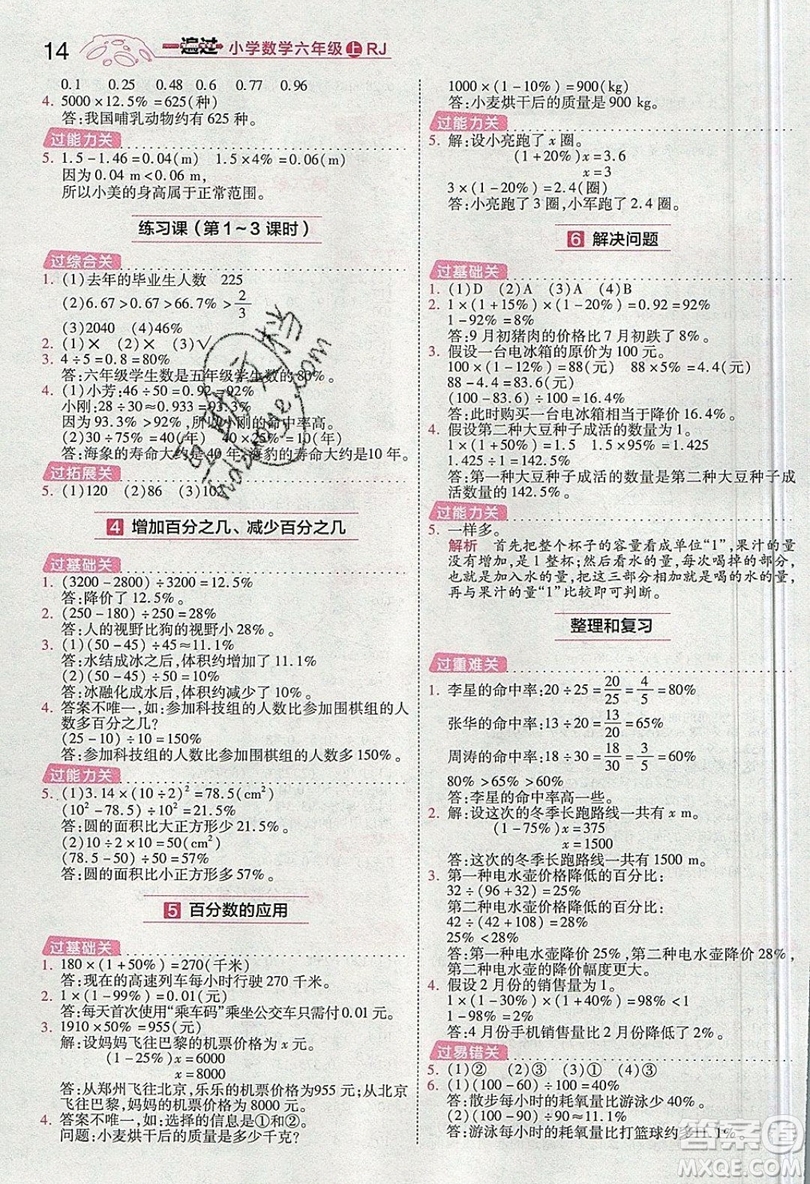 14 一遍过 小学数学六年级 上 RJ
0.1 0.25 0.48 0.6 0.77 0.96
4. 5000×12.5%=625(种)
答:我国哺乳动物约有 625 种。
过能力关
5. 1.5-1.46=0.04(m) 1.5×4%=0.06(m)
因为 0.04 m<0.06 m,
所以小美的身高属于正常范围。
练习课(第1~3课时)
过综合关
1. (1)去年的毕业生人数 225
(2)6.67>0.667>66.7%>2/3
(3)2040 (4)15
2. (1)× (2)× (3)√
3. 4÷5=0.8=80%
答:六年级学生数是五年级学生数的 80%。
4. (1)小芳:46÷50=0.92=92%
小刚:
因为 93.3%>92%,所以小刚的命中率高。
(2)30÷75%=40(年) 40×
答:海象的寿命大约是 40 年,海豹的寿命大约是 10 年。
过拓展关
5. (1)120 (2)86 (3)
4 增加百分之几、减少百分之几
过基础关
1. (3200-2800)÷3200=12.5%
答:降价了 12.5%。
2. (250-180)÷250=28%
答:人的视野比狗的视野小 28%。
3. (1)(50-45)÷45≈11.1%
答:水结成冰之后,体积约增加了 11.1%。
(2)(50-45)÷50=10%
答:冰融化成水之后,体积减少了 10%。
4. 答案不唯一,如:参加科技组的人数比参加围棋组的人数多百分之几?
(25-10)÷10=150%
答:参加科技组的人数比参加围棋组的人数多 150%。
过能力关
5. (1)3.14×(10÷2)²=78.5(cm²)
(10²-78.5)÷10²=21.5%
答:圆的面积比大正方形少 21.5%。
(2)10÷2×10=50(cm²)
(78.5-50)÷50=57%
答:圆的面积比小正方形多 57%。
5 百分数的应用
过基础关
1. 180×(1+50%)=270(千米)
答:现在的高速列车每小时行驶 270 千米。
2. 1×(1-99%)=0.01(元)
答:每天首次使用“乘车码”乘坐公交车只需付 0.01 元。
3. 1910×50%=955(元)
解:设妈妈飞往巴黎的机票价格为 x 元。
(1+
x=8000
答:从郑州飞往北京,乐乐的机票价格为955元;从北京飞往巴黎,妈妈的机票价格为 8000 元。
4. 答案不唯一,如:选择的信息是①和②。
问题:小麦烘干后的质量是多少千克?
1000×(1-10%)=900(kg)
答:小麦烘干后的质量是 900 kg。
过能力关
5. 解:设小亮跑了 x 圈。
(1+20%)x=3.6
x=3
3×(1-20%)=2.4(圈)
答:小亮跑了 3 圈,小军跑了 2.4 圈。
6 解决问题
过基础关
1. (1)D (2)A (3)A (4)B
2. 1×(1-20%)×(1+15%)=0.92=92%
1-92%=8%
答:9 月初猪肉的价格比 7 月初跌了 8%。
3. 假设一台电冰箱的原价为 100 元。
100×(1-12%)=88(元) 88×(1-5%)=83.6(元)
(100-83.6)÷100=16.4%
答:此时购买一台电冰箱比原价降了 16.4%。
4. 假设第二种大豆种子成活的数量是 1。
1×(1+50%)=1.5 1.5×95%=1.425
1.425÷1=142.5%
答:第一种大豆种子成活的数量是第二种大豆种子成活的数量的 142.5%。
过能力关
5. 一样多。
解析 首先把整个杯子的容量看成单位“1”,果汁的量是 1 整杯;然后每次喝掉一部分,再加入与喝掉的部分,也就是加入水的量,把这三部分相加就是喝的水的量,再与果汁的量“1”比较即可判断。
整理和复习
过重难关
1. 李星的命中率:20÷25=20/25=4/5=80%
张华的命中率:13÷20=13/20=65%
周涛的命中率:18÷30=18/30=3/5=60%
80%>65%>60%
答:李星的命中率高一些。
2. 解:设这次的冬季长跑路线一共有 x m。
(1-75%)x=375
x=1500
答:这次的冬季长跑路线一共有 1500 m。
3. 第一种电水壶价格降低的百分比:
32÷(96+32)=25%
第二种电水壶价格降低的百分比:
42÷(42+108)=28%
25%<28%
答:第一种电水壶价格降低 25%,第二种电水壶价格降低 28%,第二种电水壶的价格降价幅度更大。
4. 假设 2 月份的销售量为 1。
1×(1-15%)×(1+20%)=1.02
(1.02-1)÷1=2%
答:4 月份手机销售量比 2 月份增加了 2%。
过易错关
5. (1)② (2)① (3)③ (4)③
6. (1)(100-60)÷100=40%
答:散步每小时的耗氧量比游泳约少 40%。
(2)(100-90)÷90≈11.1%
答:游泳每小时的耗氧量比打篮球约多11.1%。
答案圈
MXQE.COM